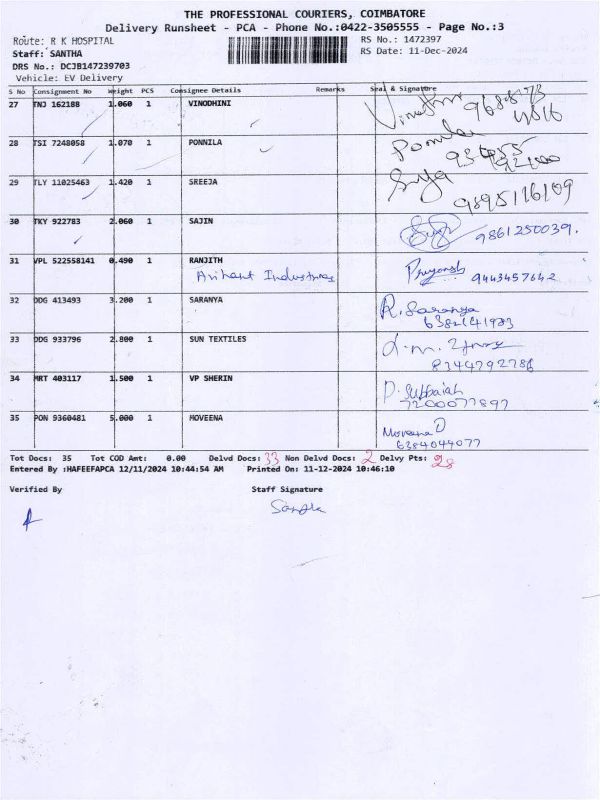 THE PROFESSIONAL COURIERS, COIMBATORE
Delivery Runsheet - PCA - Phone No.:0422-3505555 - Page No.:3
Route: R K HOSPITAL
RS No.: 1472397
Staff: SANTHA
RS Date: 11-Dec-2024
DRS No.: DCJB147239703
Vehicle: EV Delivery
S No Consignment No Weight PCS Consignee Details Remarks Seal & Signature
27 TNJ 162188 1.060 1 VINODHINI
28 TSI 7248058 1.070 1 PONNILA
29 TLY 11025463 1.420 1 SREEJA 9895116109
30 TKY 922783 2.060 1 SAJIN 9861250039.
31 VPL 522558141 0.490 1 RANJITH
Arihant Industries 9443457642
32 DDG 413493 3.200 1 SARANYA R. Saranya
6382141983
33 DDG 933796 2.800 1 SUN TEXTILES
8344792786
34 MRT 403117 1.500 1 VP SHERIN P. Subbaiah
7200077897
35 PON 9360481 5.000 1 MOVEENA Moveena D
6384044077
Tot Docs: 35 Tot COD Amt: 0.00 Delvd Docs: 33 Non Delvd Docs: 2 Delvy Pts: 28
Entered By :HAFEEFAPCA 12/11/2024 10:44:54 AM Printed On: 11-12-2024 10:46:10
Verified By Staff Signature
Santha